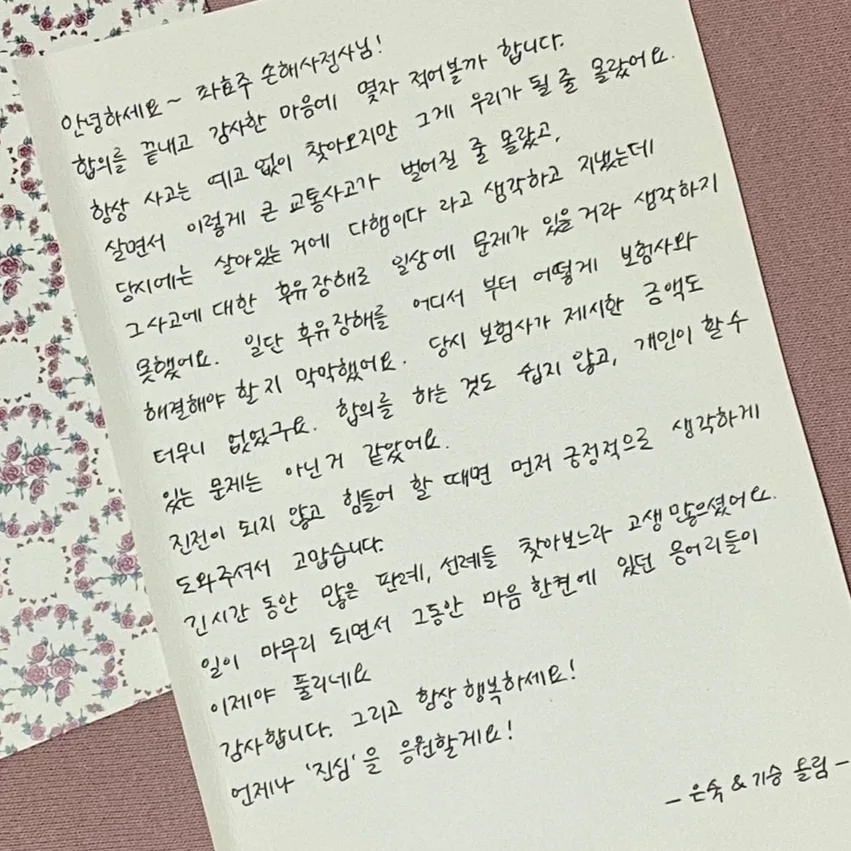 안녕하세요~ 좌효주 손해사정사님!
합의를 끝내고 감사한 마음에 몇자 적어볼까 합니다.
항상 사고는 예고없이 찾아오지만 그게 우리가 될 줄 몰랐어요.
살면서 이렇게 큰 교통사고가 벌어질 줄 몰랐고,
당시에는 살아있는거에 다행이다 라고 생각하고 지냈는데
그사고에 대한 후유장해로 일상에 문제가 있을거라 생각하지
못했어요. 일단 후유장해를 어디서 부터 어떻게 보험사와
해결해야 할지 막막했어요. 당시 보험사가 제시한 금액도
터무니 없었구요. 합의를 하는 것도 쉽지 않고, 개인이 할수
있는 문제는 아닌거 같았어요.
진전이 되지 않고 힘들어 할 때면 먼저 긍정적으로 생각하게
도와주셔서 고맙습니다.
긴시간 동안 많은 판례, 선례들 찾아보느라 고생많으셨어요.
일이 마무리 되면서 그동안 마음 한켠에 있던 응어리들이
이제야 풀리네요
감사합니다. 그리고 항상 행복하세요!
언제나 '진심'을 응원할게요!
- 은숙 & 기승 올림 -